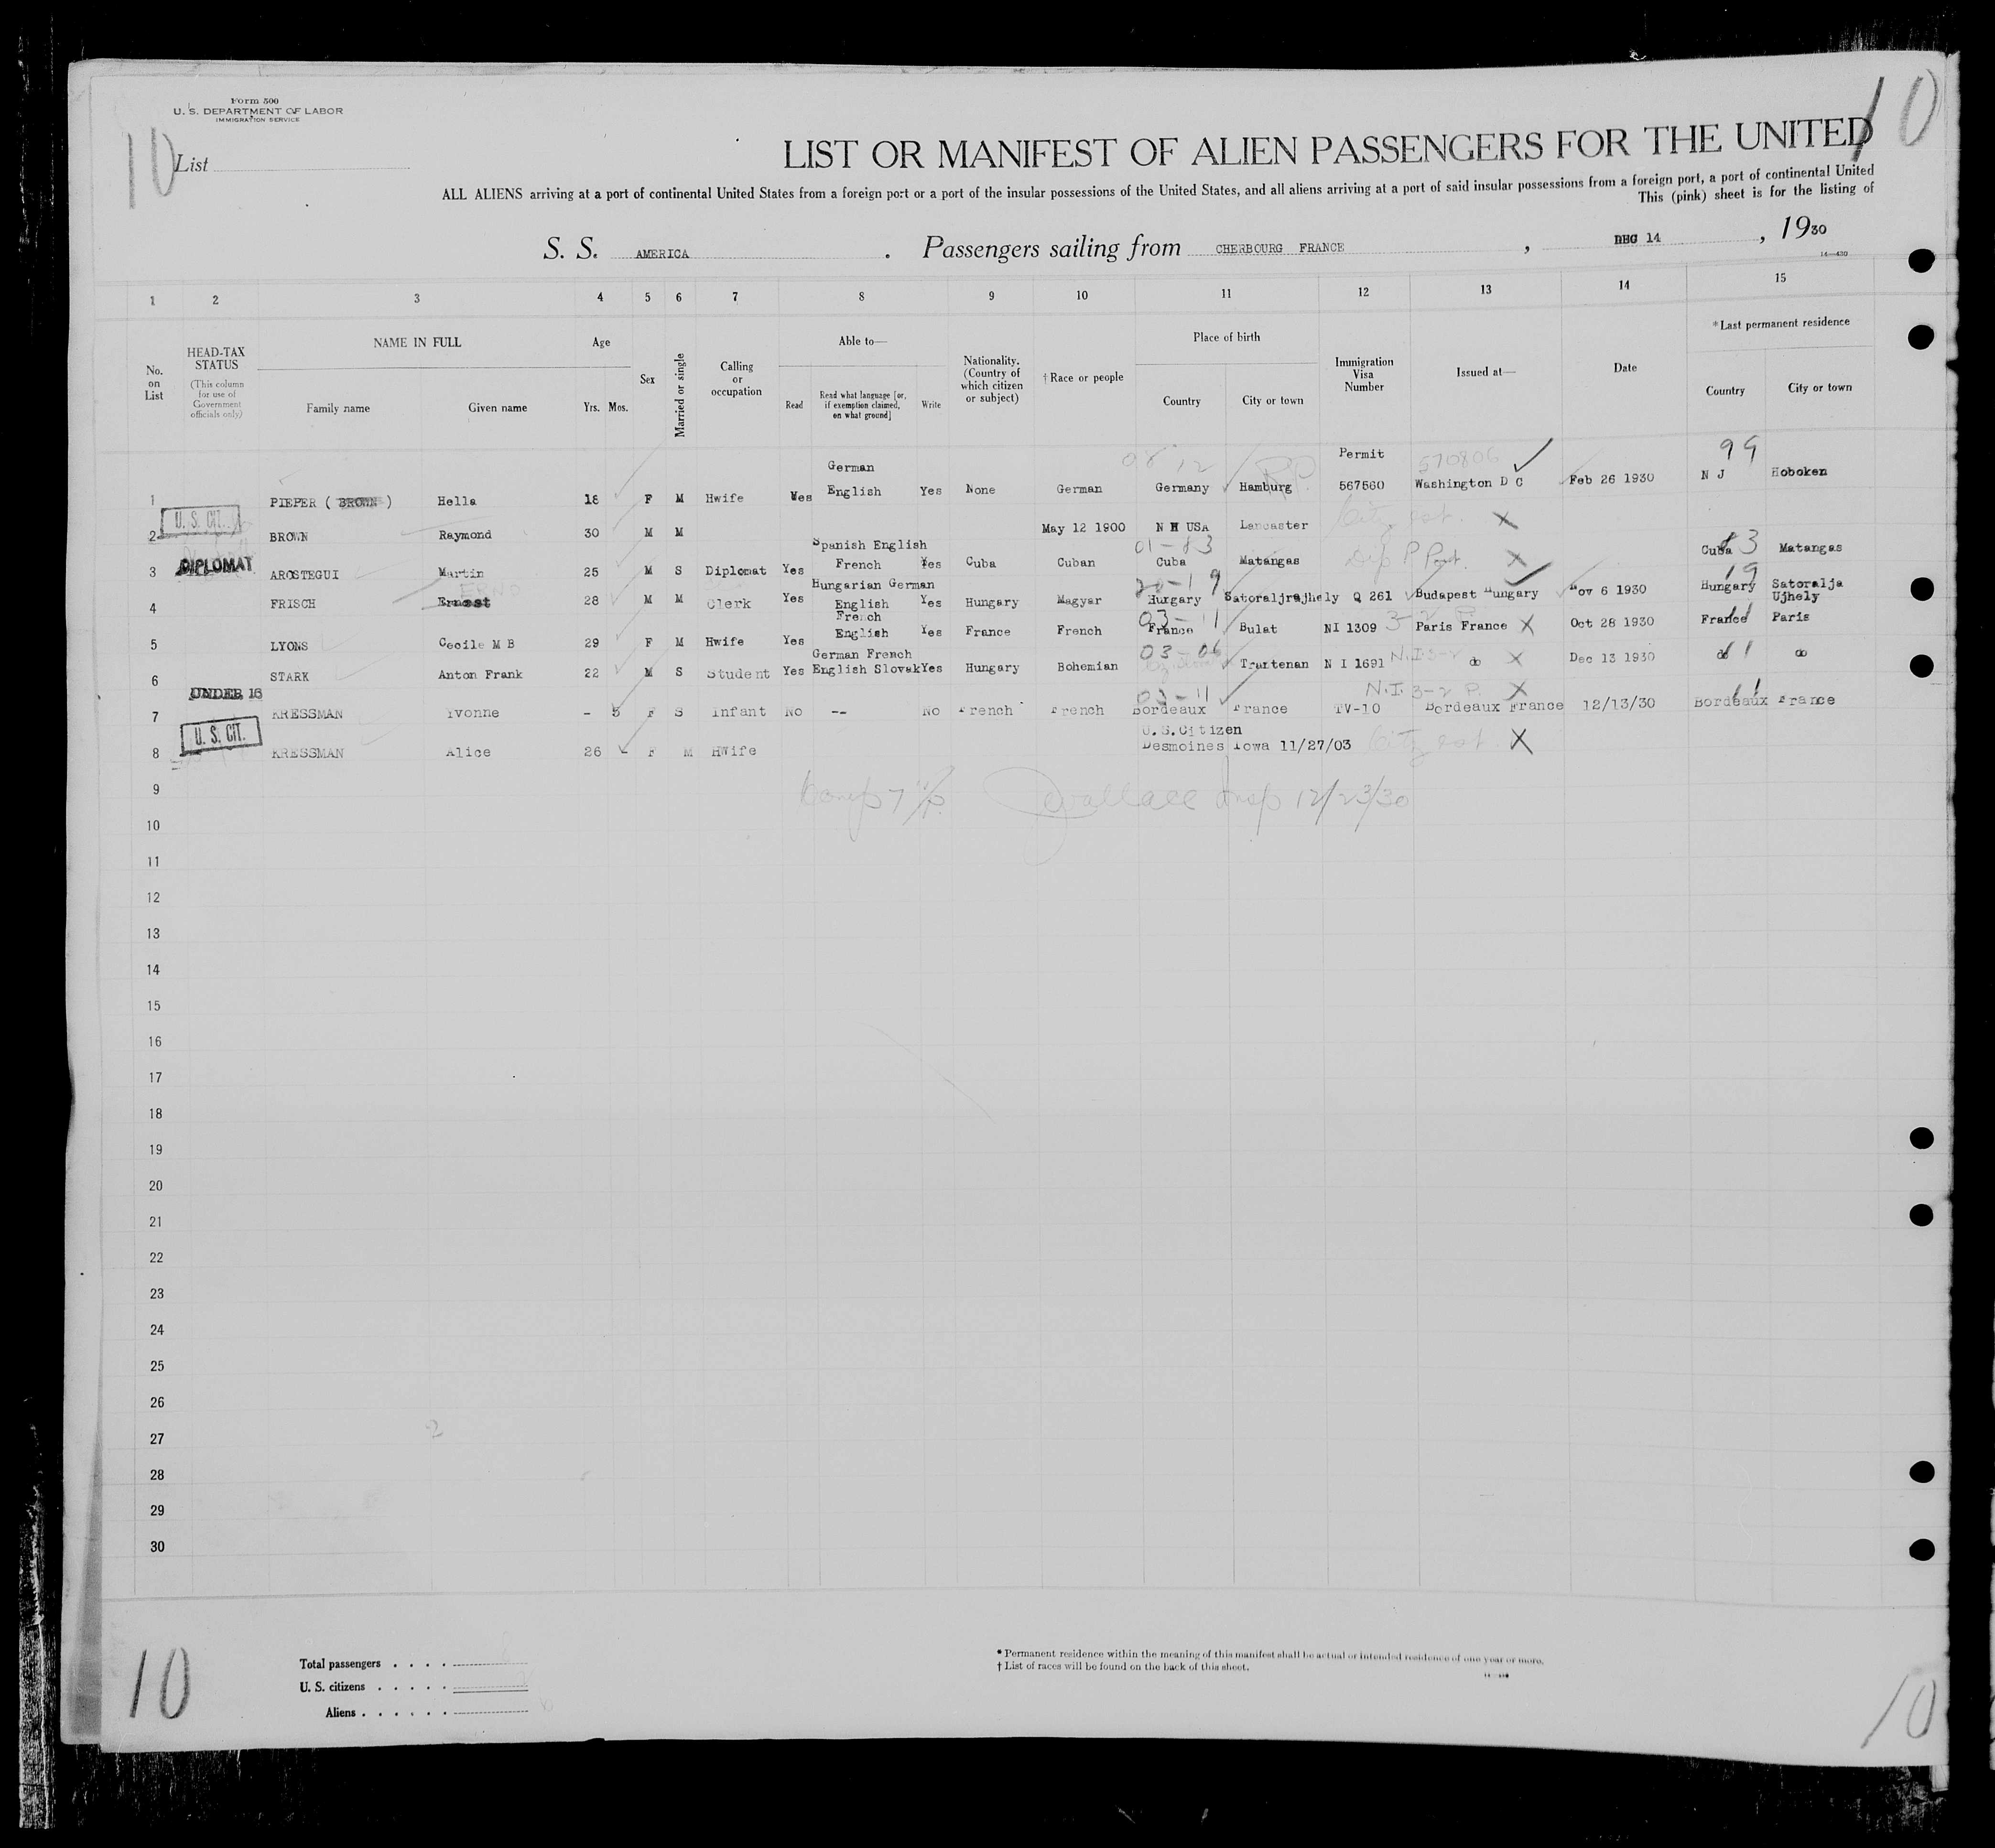 Form 500
U. S. DEPARTMENT OF LABOR
IMMIGRATION SERVICE
10
10
List
LIST OR MANIFEST OF ALIEN PASSENGERS FOR THE UNITED
ALL ALIENS arriving at a port of continental United States from a foreign port or a port of the insular possessions of the United States, and all aliens arriving at a port of said insular possessions from a foreign port, a port of continental United
This (pink) sheet is for the listing of
S. S. AMERICA . Passengers sailing from CHERBOURG FRANCE , DEC 14 , 1930
14—430
1 2 3 4 5 6 7 8 9 10 11 12 13 14 15
No. on List
HEAD-TAX STATUS
(This column for use of Government officials only)
NAME IN FULL
Family name Given name
Age
Yrs. Mos.
Sex
Married or single
Calling or occupation
Able to—
Read
Read what language [or, if exemption claimed, on what ground]
Write
Nationality. (Country of which citizen or subject)
† Race or people
Place of birth
Country City or town
Immigration Visa Number
Issued at—
Date
*Last permanent residence
Country City or town
08 12 R.P. Permit 570806 99
1 PIEPER ( BROWN ) Hella 18 F M Hwife Yes German English Yes None German Germany Hamburg 567560 Washington D C Feb 26 1930 N J Hoboken
U. S. CIT.
2 BROWN Raymond 30 M M May 12 1900 N H USA Lancaster City est. X
DIPLOMAT
01-83 Dip P Port. X 83
3 AROSTEGUI Martin 25 M S Diplomat Yes Spanish English French Yes Cuba Cuban Cuba Matangas Cuba Matangas
ERNO
20-19 19
4 FRISCH Ernest 28 M M Clerk Yes Hungarian German English Yes Hungary Magyar Hurgary Satoraljrajhely Q 261 Budapest Hungary Nov 6 1930 Hungary Satoralja Ujhely
03-11 3-2 P. 11
5 LYONS Cecile M B 29 F M Hwife Yes French English Yes France French France Bulat NI 1309 Paris France X Oct 28 1930 France Paris
03-06 N.I 3-2 11
6 STARK Anton Frank 22 M S Student Yes German French English Slovak Yes Hungary Bohemian Trautenan N I 1691 do X Dec 13 1930 do do
UNDER 16
03-11 N.I. 3-2 P. X 11
7 KRESSMAN Yvonne - 5 F S Infant No -- No French French Bordeaux France TV-10 Bordeaux France 12/13/30 Bordeaux France
U. S. CIT.
8 KRESSMAN Alice 26 F M HWife U.S.Citizen Desmoines Iowa 11/27/03 City est. X
9
Wallace Insp 12/23/30
10
11
12
13
14
15
16
17
18
19
20
21
22
23
24
25
26
27
2
28
29
30
10
Total passengers . . . .
U. S. citizens . . . . .
Aliens . . . . . .
* Permanent residence within the meaning of this manifest shall be actual or intended residence of one year or more.
† List of races will be found on the back of this sheet.
10